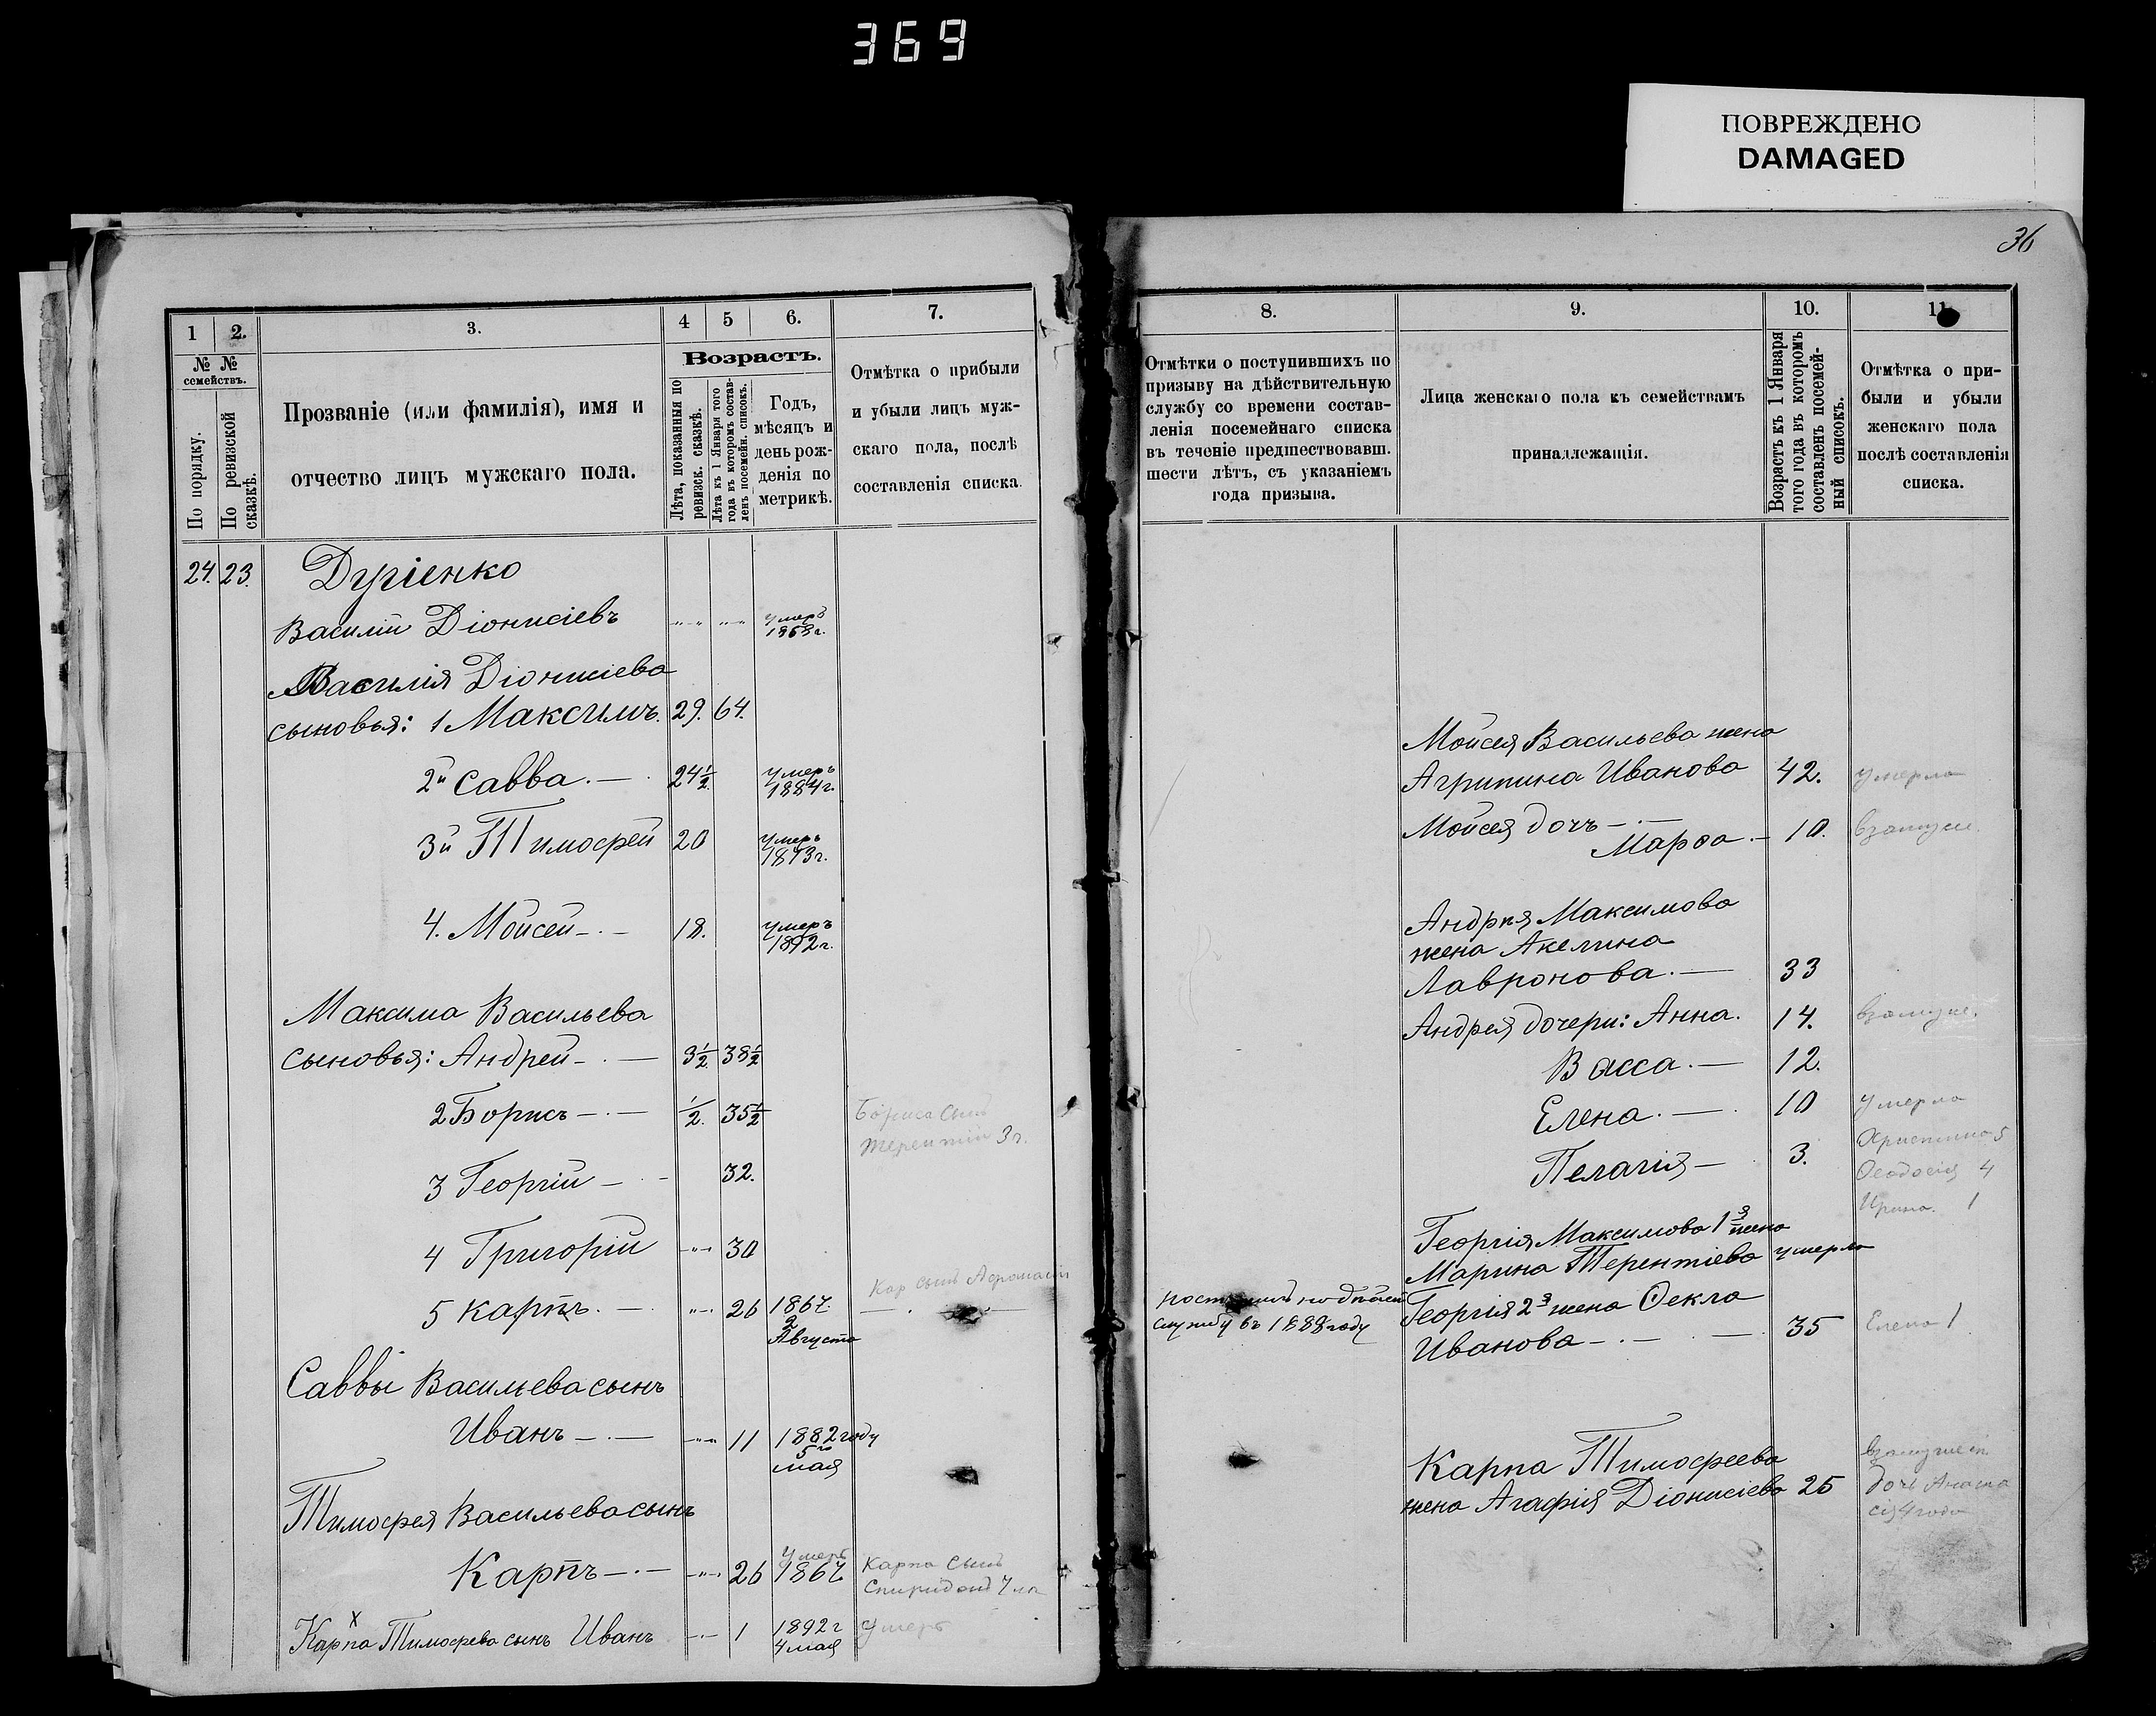 369
ПОВРЕЖДЕНО
DAMAGED
36
1
2.
3.
4
5
6.
7.
№ №
семействъ.
По порядку.
По ревизской
сказкѣ.
Прозваніе (или фамилія), имя и
отчество лицъ мужскаго пола.
Возрастъ.
Лѣта, показанныя по
ревизск. сказкѣ.
Лѣта къ 1 Января того
года въ которомъ состав-
ленъ посемейн. списокъ.
Годъ,
мѣсяцъ и
день рож-
денія по
метрикѣ.
Отмѣтка о прибыли
и убыли лицъ муж-
скаго пола, послѣ
составленія списка.
24. 23. Дугіенко
Василій Діонисіевъ умеръ
1868 г.
Василія Діонисіева
сыновья: 1 Максимъ. 29. 64.
2й Савва. — 24½ умеръ
1884 г.
3й Тимофей 20 умеръ
1873 г.
4. Мойсей — 18. умеръ
1892 г.
Максима Васильева
сыновья: Андрей — 3½ 38½
2 Борисъ — ½ 35½ Бориса сынъ
Терентій 3 г.
3 Георгій — 32.
4 Григорій 30
Кар сынъ
5 Карпъ. — 26 1867.
2
Августа
Саввы Васильева сынъ
Иванъ — 11 1882 году
5го
мая
Тимофея Васильева сынъ
умеръ
Карпъ — 26 1867 Карпа сынъ
Спиридонъ
Карпа Тимофева сынъ Иванъ 1 1892 г умеръ
4 мая
8.
9.
10.
11.
Отмѣтки о поступившихъ по
призыву на дѣйствительную
службу со времени состав-
ленія посемейнаго списка
въ теченіе предшествовавш.
шести лѣтъ, съ указаніемъ
года призыва.
Лица женскаго пола къ семействамъ
принадлежащія.
Возрастъ къ 1 Января
того года въ которомъ
составленъ посемей-
ный списокъ.
Отмѣтка о при-
были и убыли
женскаго пола
послѣ составленія
списка.
Мойсея Васильева жена
Агрипина Иванова 42. умерла
Мойсея дочь —
Марѳа. — 10. взамуже.
Андрея Максимова
жена Акелина
Лавронова. — 33
Андрея дочери: Анна. 14. взамуже.
Васса. — 12.
Елена. — 10 умерла
Христина 5
Пелагія — 3. Ѳеодосія 4
Ирина. 1
Георгія Максимова 1я жена
Марина Терентіева умерла
Георгія 2я жена Ѳекла
службу въ 1888 году
Иванова — 35 Елена 1
Карпа Тимофеева взамужест.
жена Агафія Діонисіева 25 дочь Анаста
сія 4 года